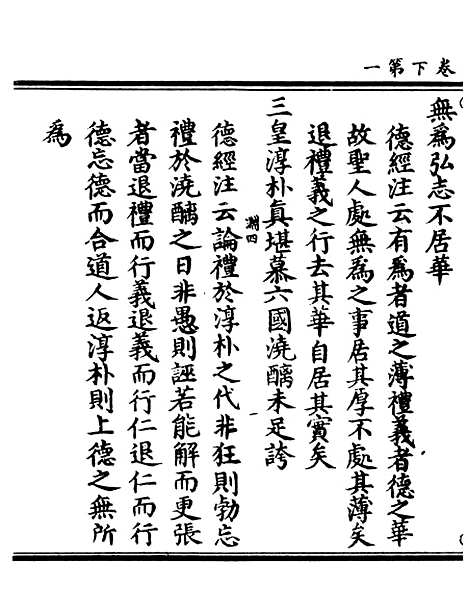 卷下第一
無爲弘志不居華
德經注云有爲者道之薄禮義者德之華
故聖人處無爲之事居其厚不處其薄矣
退禮義之行去其華自居其實矣
三皇淳朴真堪慕六國澆醨未足誇
淵四
德經注云論禮於淳朴之代非狂則勃忘
禮於澆醨之日非愚則誣若能解而更張
者當退禮而行義退義而行仁退仁而行
德忘德而合道人返淳朴則上德之無所
爲